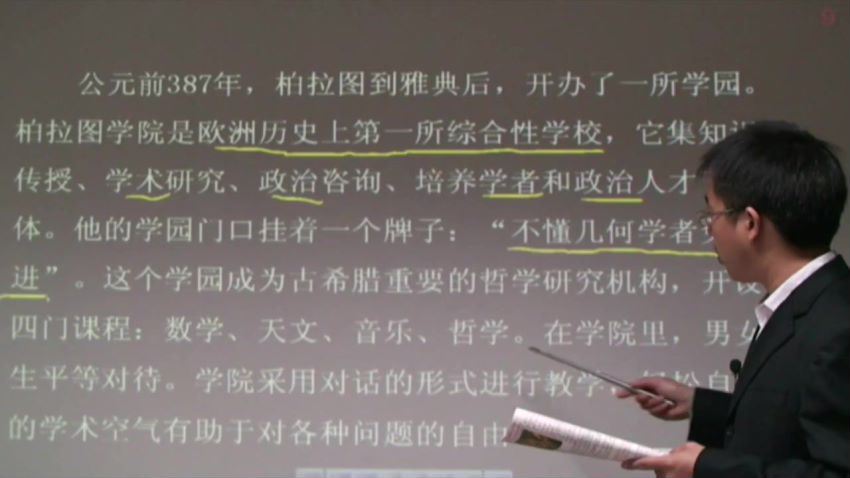 9
公元前387年，柏拉图到雅典后，开办了一所学园。
柏拉图学院是欧洲历史上第一所综合性学校，它集知识
传授、学术研究、政治咨询、培养学者和政治人才
体。他的学园门口挂着一个牌子：“不懂几何学者
进”。这个学园成为古希腊重要的哲学研究机构，开设
四门课程：数学、天文、音乐、哲学。在学院里，男女
生平等对待。学院采用对话的形式进行教学，轻松自
的学术空气有助于对各种问题的自由